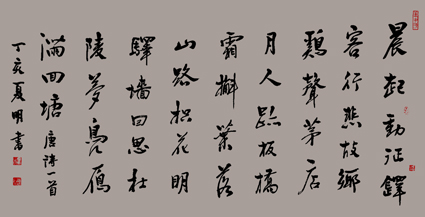 晨起動征鐸
客行悲故鄉
鷄聲茅店
月人跡板橋
霜槲葉落
山路枳花明
驛墻因思杜
陵夢鳧雁
滿回塘 唐詩一首
丁亥夏明書